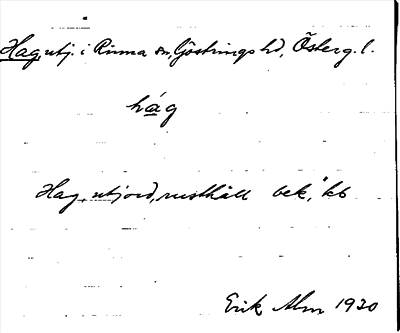 Hag, utj. i Rinna sn, Göstrings hd, Österg. l.
hág
Hag, utjord, rusthåll bek, kb
Erik Alm 1930